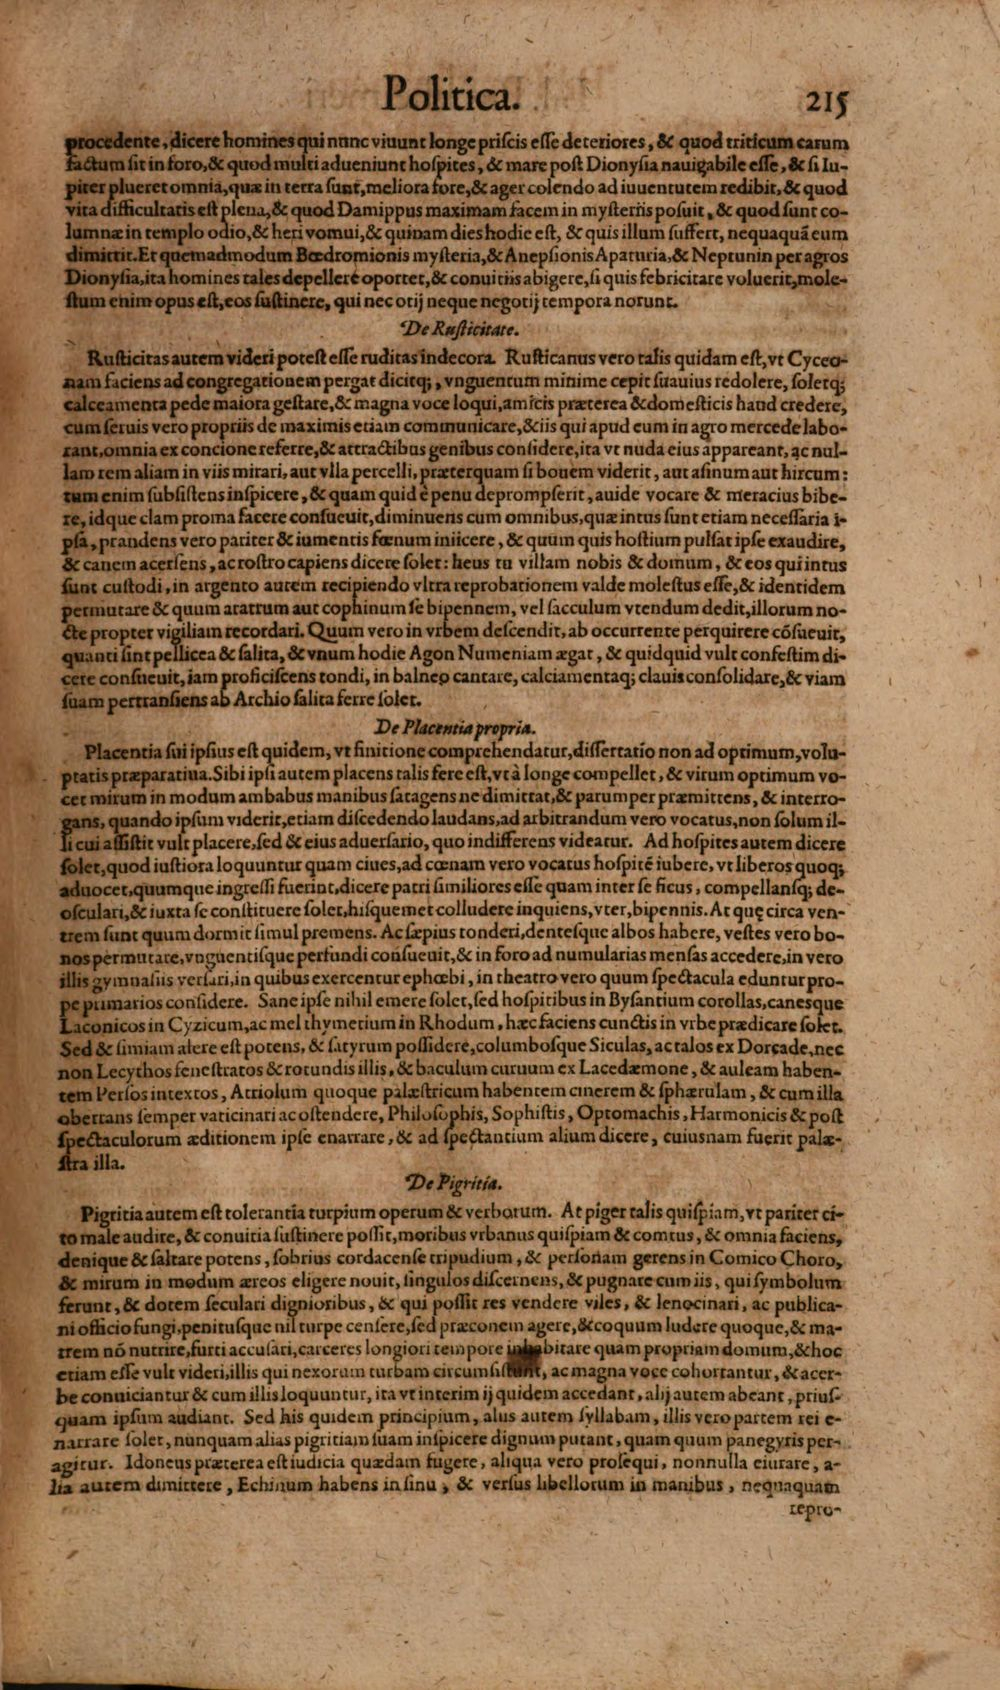 Politica. 215
procedente, dicere homines qui nunc viuunt longe priſcis eſſe deteriores, & quod triticum carum
factum ſit in foro, & quod multi adueniunt hoſpites, & mare poſt Dionyſia nauigabile eſſe, & ſi Iu-
piter plueret omnia, quæ in terra ſunt, meliora fore, & ager colendo ad iuuentutem redibit, & quod
vita difficultatis eſt plena, & quod Damippus maximam facem in myſteriis poſuit, & quod ſunt co-
lumnæ in templo odio, & heri vomui, & quinam dies hodie eſt, & quis illum ſuffert, nequaquã eum
dimittit. Et quemadmodum Bœdromionis myſteria, & Anepſionis Apaturia, & Neptunin per agros
Dionyſia, ita homines tales depellere oportet, & conuitiis abigere, ſi quis febricitare voluerit, mole-
ſtum enim opus eſt, eos ſuſtinere, qui nec otij neque negotij tempora norunt.
De Ruſticitate.
Ruſticitas autem videri poteſt eſſe ruditas indecora. Ruſticanus vero talis quidam eſt, vt Cyceo-
nam faciens ad congregationem pergat dicitq;, vnguentum minime cepit ſuauius redolere, ſoletq;
calceamenta pede maiora geſtare, & magna voce loqui, amicis præterea & domeſticis haud credere,
cum ſeruis vero propriis de maximis etiam communicare, & iis qui apud eum in agro mercede labo-
rant, omnia ex concione referre, & attractibus genibus conſidere, ita vt nuda eius appareant, ac nul-
lam rem aliam in viis mirari, aut vlla percelli, præterquam ſi bouem viderit, aut aſinum aut hircum:
tum enim ſubſiſtens inſpicere, & quam quid è penu deprompſerit, auide vocare & meracius bibe-
re, idque clam proma facere conſueuit, diminuens cum omnibus, quæ intus ſunt etiam neceſſaria i-
pſa, prandens vero pariter & iumentis fœnum iniicere, & quum quis hoſtium pulſat ipſe exaudire,
& canem acerſens, ac roſtro capiens dicere ſolet: heus tu villam nobis & domum, & eos qui intus
ſunt cuſtodi, in argento autem recipiendo vltra reprobationem valde moleſtus eſſe, & identidem
permutare & quum aratrum aut cophinum ſe bipennem, vel ſacculum vtendum dedit, illorum no-
cte propter vigiliam recordari. Quum vero in vrbem deſcendit, ab occurrente perquirere cõſueuit,
quanti ſint pellicea & ſalita, & vnum hodie Agon Numeniam ægat, & quidquid vult confeſtim di-
cere conſueuit, iam proficiſcens tondi, in balneo cantare, calciamentaq; clauis conſolidare, & viam
ſuam pertranſiens ab Archio ſalita ferre ſolet.
De Placentia propria.
Placentia ſui ipſius eſt quidem, vt finitione comprehendatur, diſſertatio non ad optimum, volu-
ptatis præparatiua. Sibi ipſi autem placens talis fere eſt, vt à longe compellet, & virum optimum vo-
cet mirum in modum ambabus manibus ſatagens ne dimittat, & parumper præmittens, & interro-
gans, quando ipſum viderit, etiam diſcedendo laudans, ad arbitrandum vero vocatus, non ſolum il-
li cui aſſiſtit vult placere, ſed & eius aduerſario, quo indifferens videatur. Ad hoſpites autem dicere
ſolet, quod iuſtiora loquuntur quam ciues, ad cœnam vero vocatus hoſpitẽ iubere, vt liberos quoq;
aduocet, quumque ingreſſi fuerint, dicere patri ſimiliores eſſe quam inter ſe ficus, compellanſq; de-
oſculari, & iuxta ſe conſtituere ſolet, hiſquemet colludere inquiens, vter, bipennis. At quę circa ven-
trem ſunt quum dormit ſimul premens. Ac ſæpius tonderi, denteſque albos habere, veſtes vero bo-
nos permutare, vnguentiſque perfundi conſueuit, & in foro ad numularias menſas accedere, in vero
illis gymnaſiis verſari, in quibus exercentur ephœbi, in theatro vero quum ſpectacula eduntur pro-
pe primarios conſidere. Sane ipſe nihil emere ſolet, ſed hoſpitibus in Byſantium corollas, canesque
Laconicos in Cyzicum, ac mel thymetium in Rhodum, hæc faciens cunctis in vrbe prædicare ſolet.
Sed & ſimiam alere eſt potens, & ſatyrum poſſidere, columboſque Siculas, ac talos ex Dorcade, nec
non Lecythos feneſtratos & rotundis illis, & baculum curuum ex Lacedæmone, & auleam haben-
tem Perſos intextos, Atriolum quoque palæſtricum habentem cinerem & ſphærulam, & cum illa
oberrans ſemper vaticinari ac oſtendere, Philoſophis, Sophiſtis, Optomachis, Harmonicis & poſt
ſpectaculorum æditionem ipſe enarrare, & ad ſpectantium alium dicere, cuiusnam fuerit palæ-
ſtra illa.
De Pigritia.
Pigritia autem eſt tolerantia turpium operum & verborum. At piger talis quiſpiam, vt pariter ci-
to male audire, & conuitia ſuſtinere poſſit, moribus vrbanus quiſpiam & comtus, & omnia faciens,
denique & ſaltare potens, ſobrius cordacenſe tripudium, & perſonam gerens in Comico Choro,
& mirum in modum æreos eligere nouit, ſingulos diſcernens, & pugnare cum iis, qui ſymbolum
ferunt, & dotem ſeculari dignioribus, & qui poſſit res vendere viles, & lenocinari, ac publica-
ni officio fungi, penituſque nil turpe cenſere, ſed præconem agere, & coquum ludere quoque, & ma-
trem nõ nutrire, furti accuſari, carceres longiori tempore inhabitare quam propriam domum, & hoc
etiam eſſe vult videri, illis qui nexorum turbam circumſiſtunt, ac magna voce cohortantur, & acer-
be conuiciantur & cum illis loquuntur, ita vt interim ij quidem accedant, alij autem abeant, priuſ-
quam ipſum audiant. Sed his quidem principium, alus autem ſyllabam, illis vero partem rei e-
narrare ſolet, nunquam alias pigritiam ſuam inſpicere dignum putant, quam quum panegyris per-
agitur. Idoneus præterea eſt iudicia quædam fugere, aliqua vero proſequi, nonnulla eiurare, a-
lia autem dimittere, Echinum habens in ſinu, & verſus libellorum in manibus, nequaquam
repro-